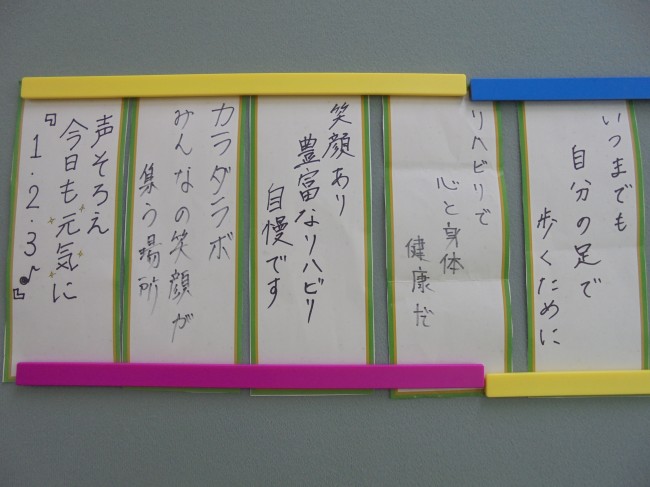 いつまでも
自分の足で
歩くために
リハビリで
心と身体
健康だ
笑顔あり
豊富なリハビリ
自慢です
カラダラボ
みんなの笑顔が
集う場所
声そろえ
今日も元気に
『1・2・3♪』